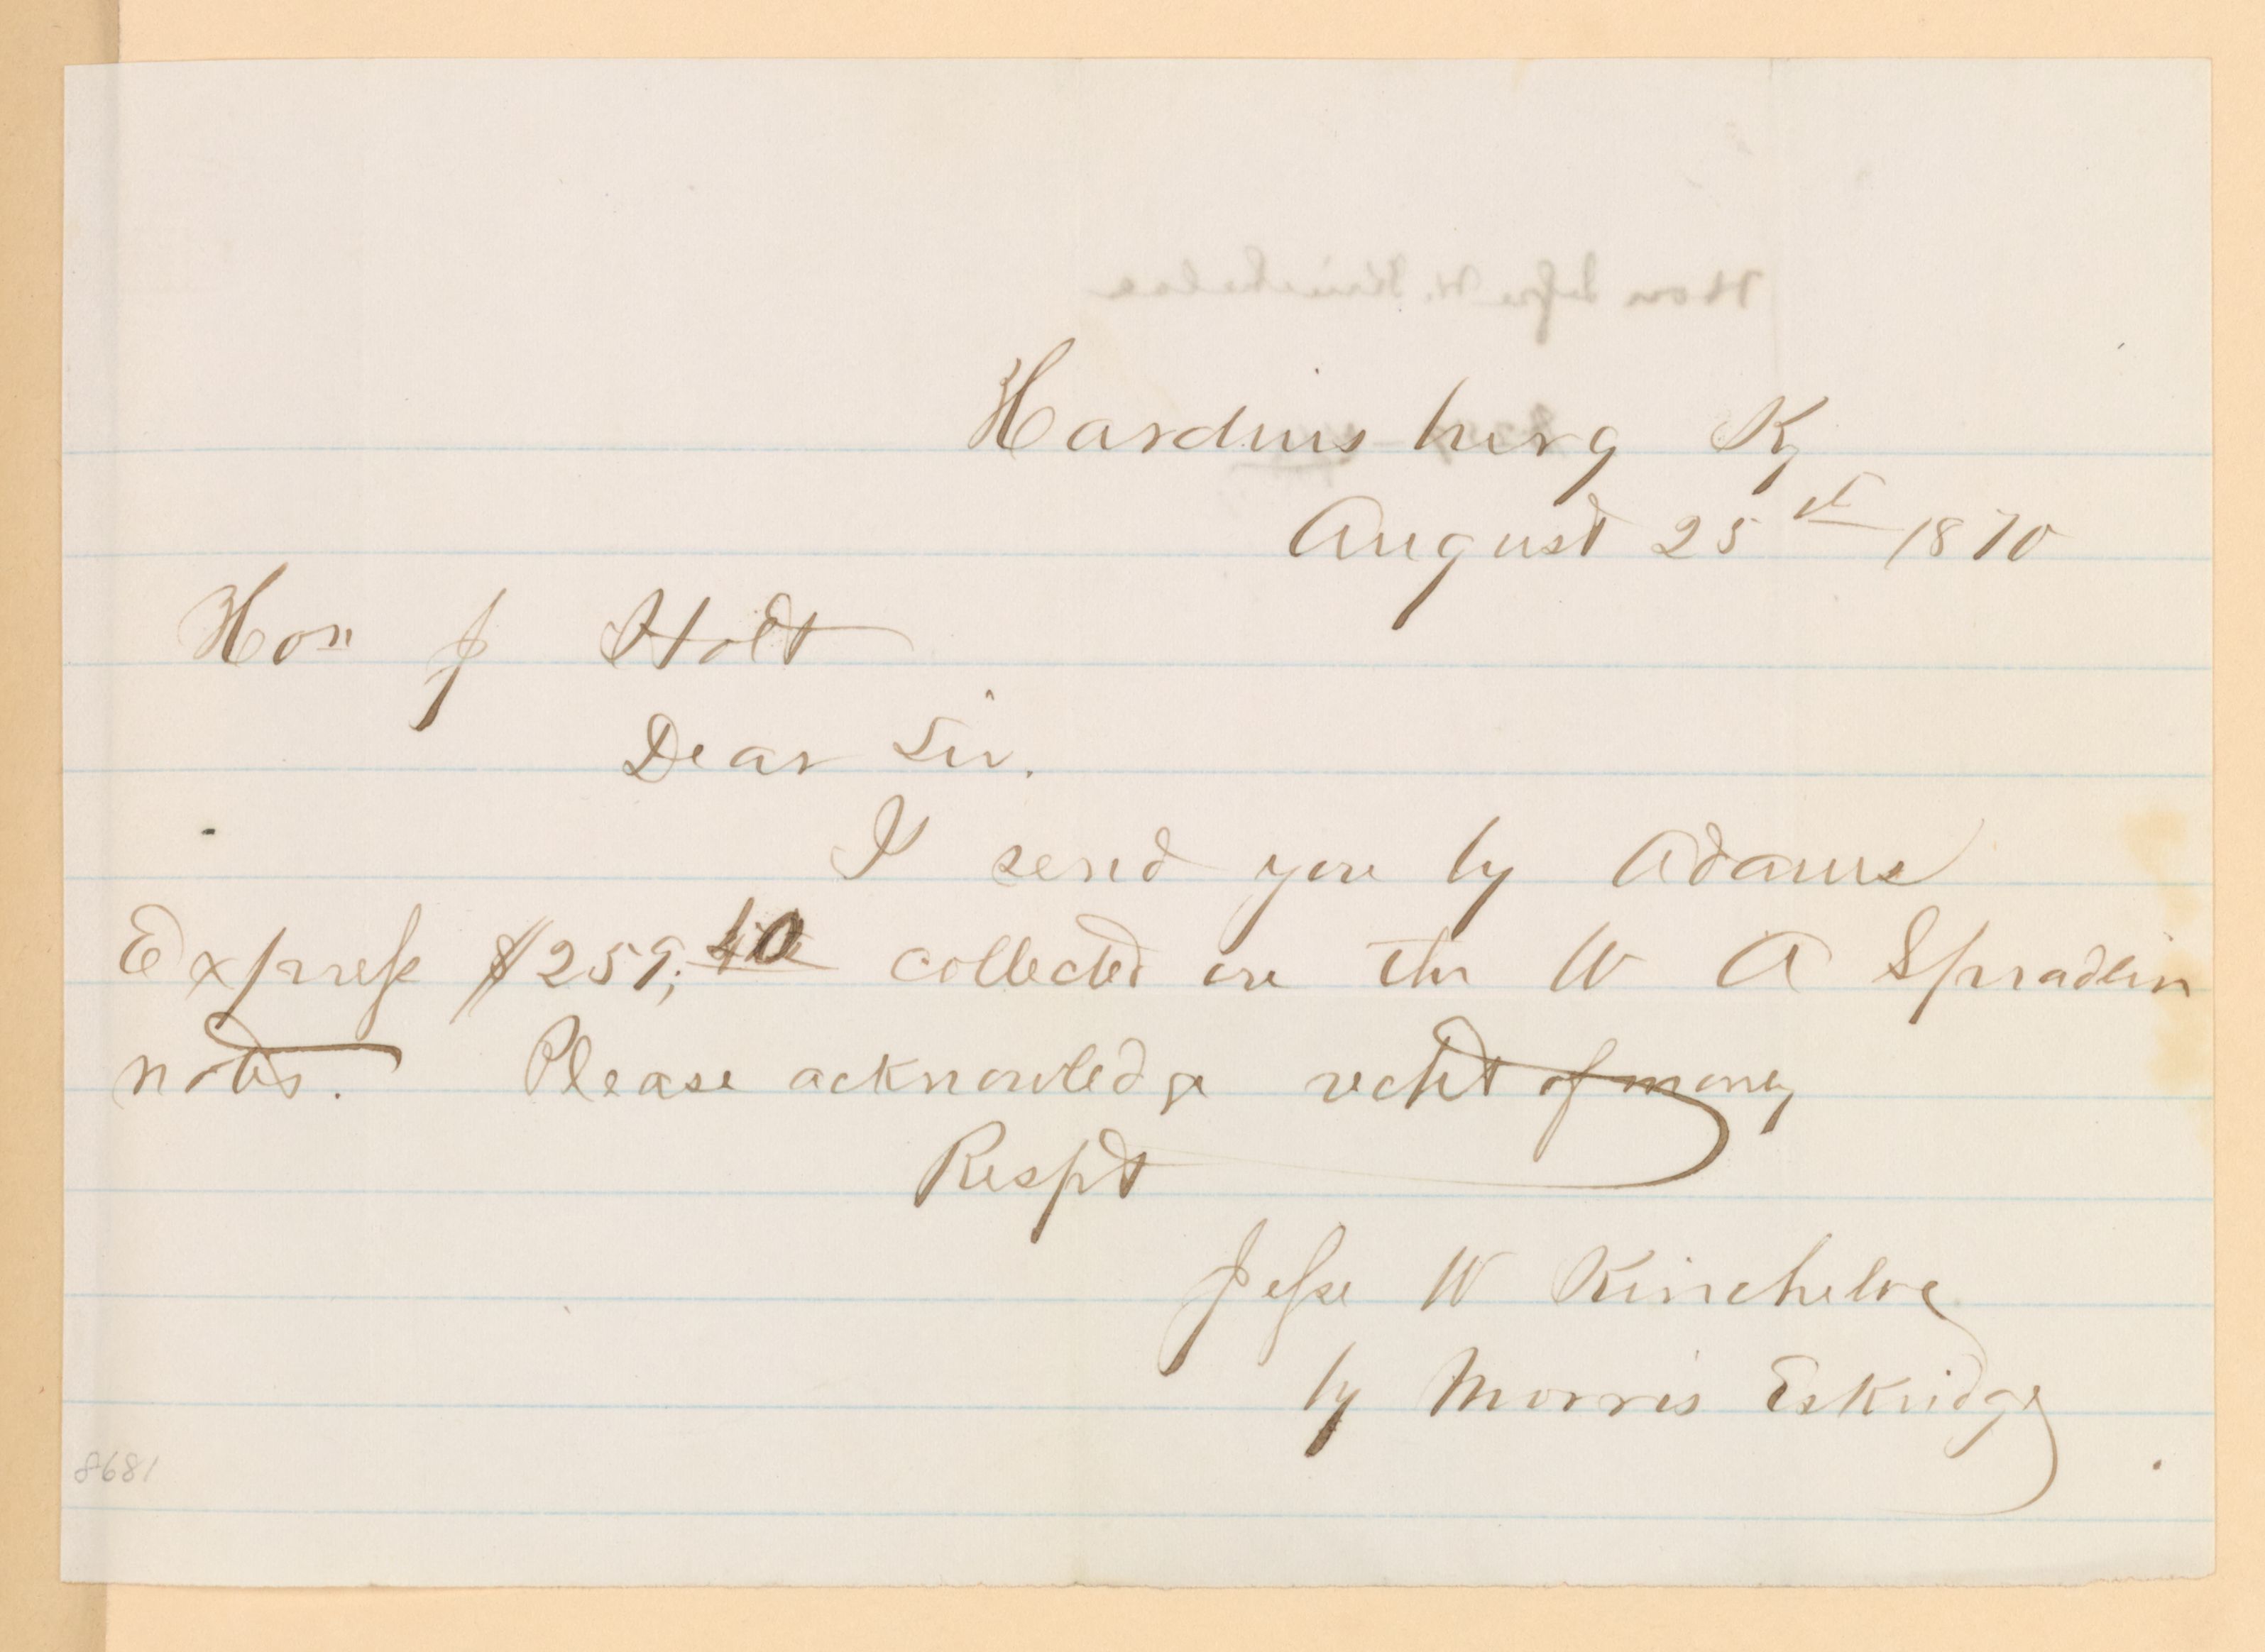 Hardinsburg Ky
August 25th 1870
Hon J Holt
Dear Sir.
I send you by Adams
Express $259,40 collected on the W A Spradlin
notes. Please acknowledge rect of money
Respt
Jesse W Kincheloe
by Morris Eskridge
8681